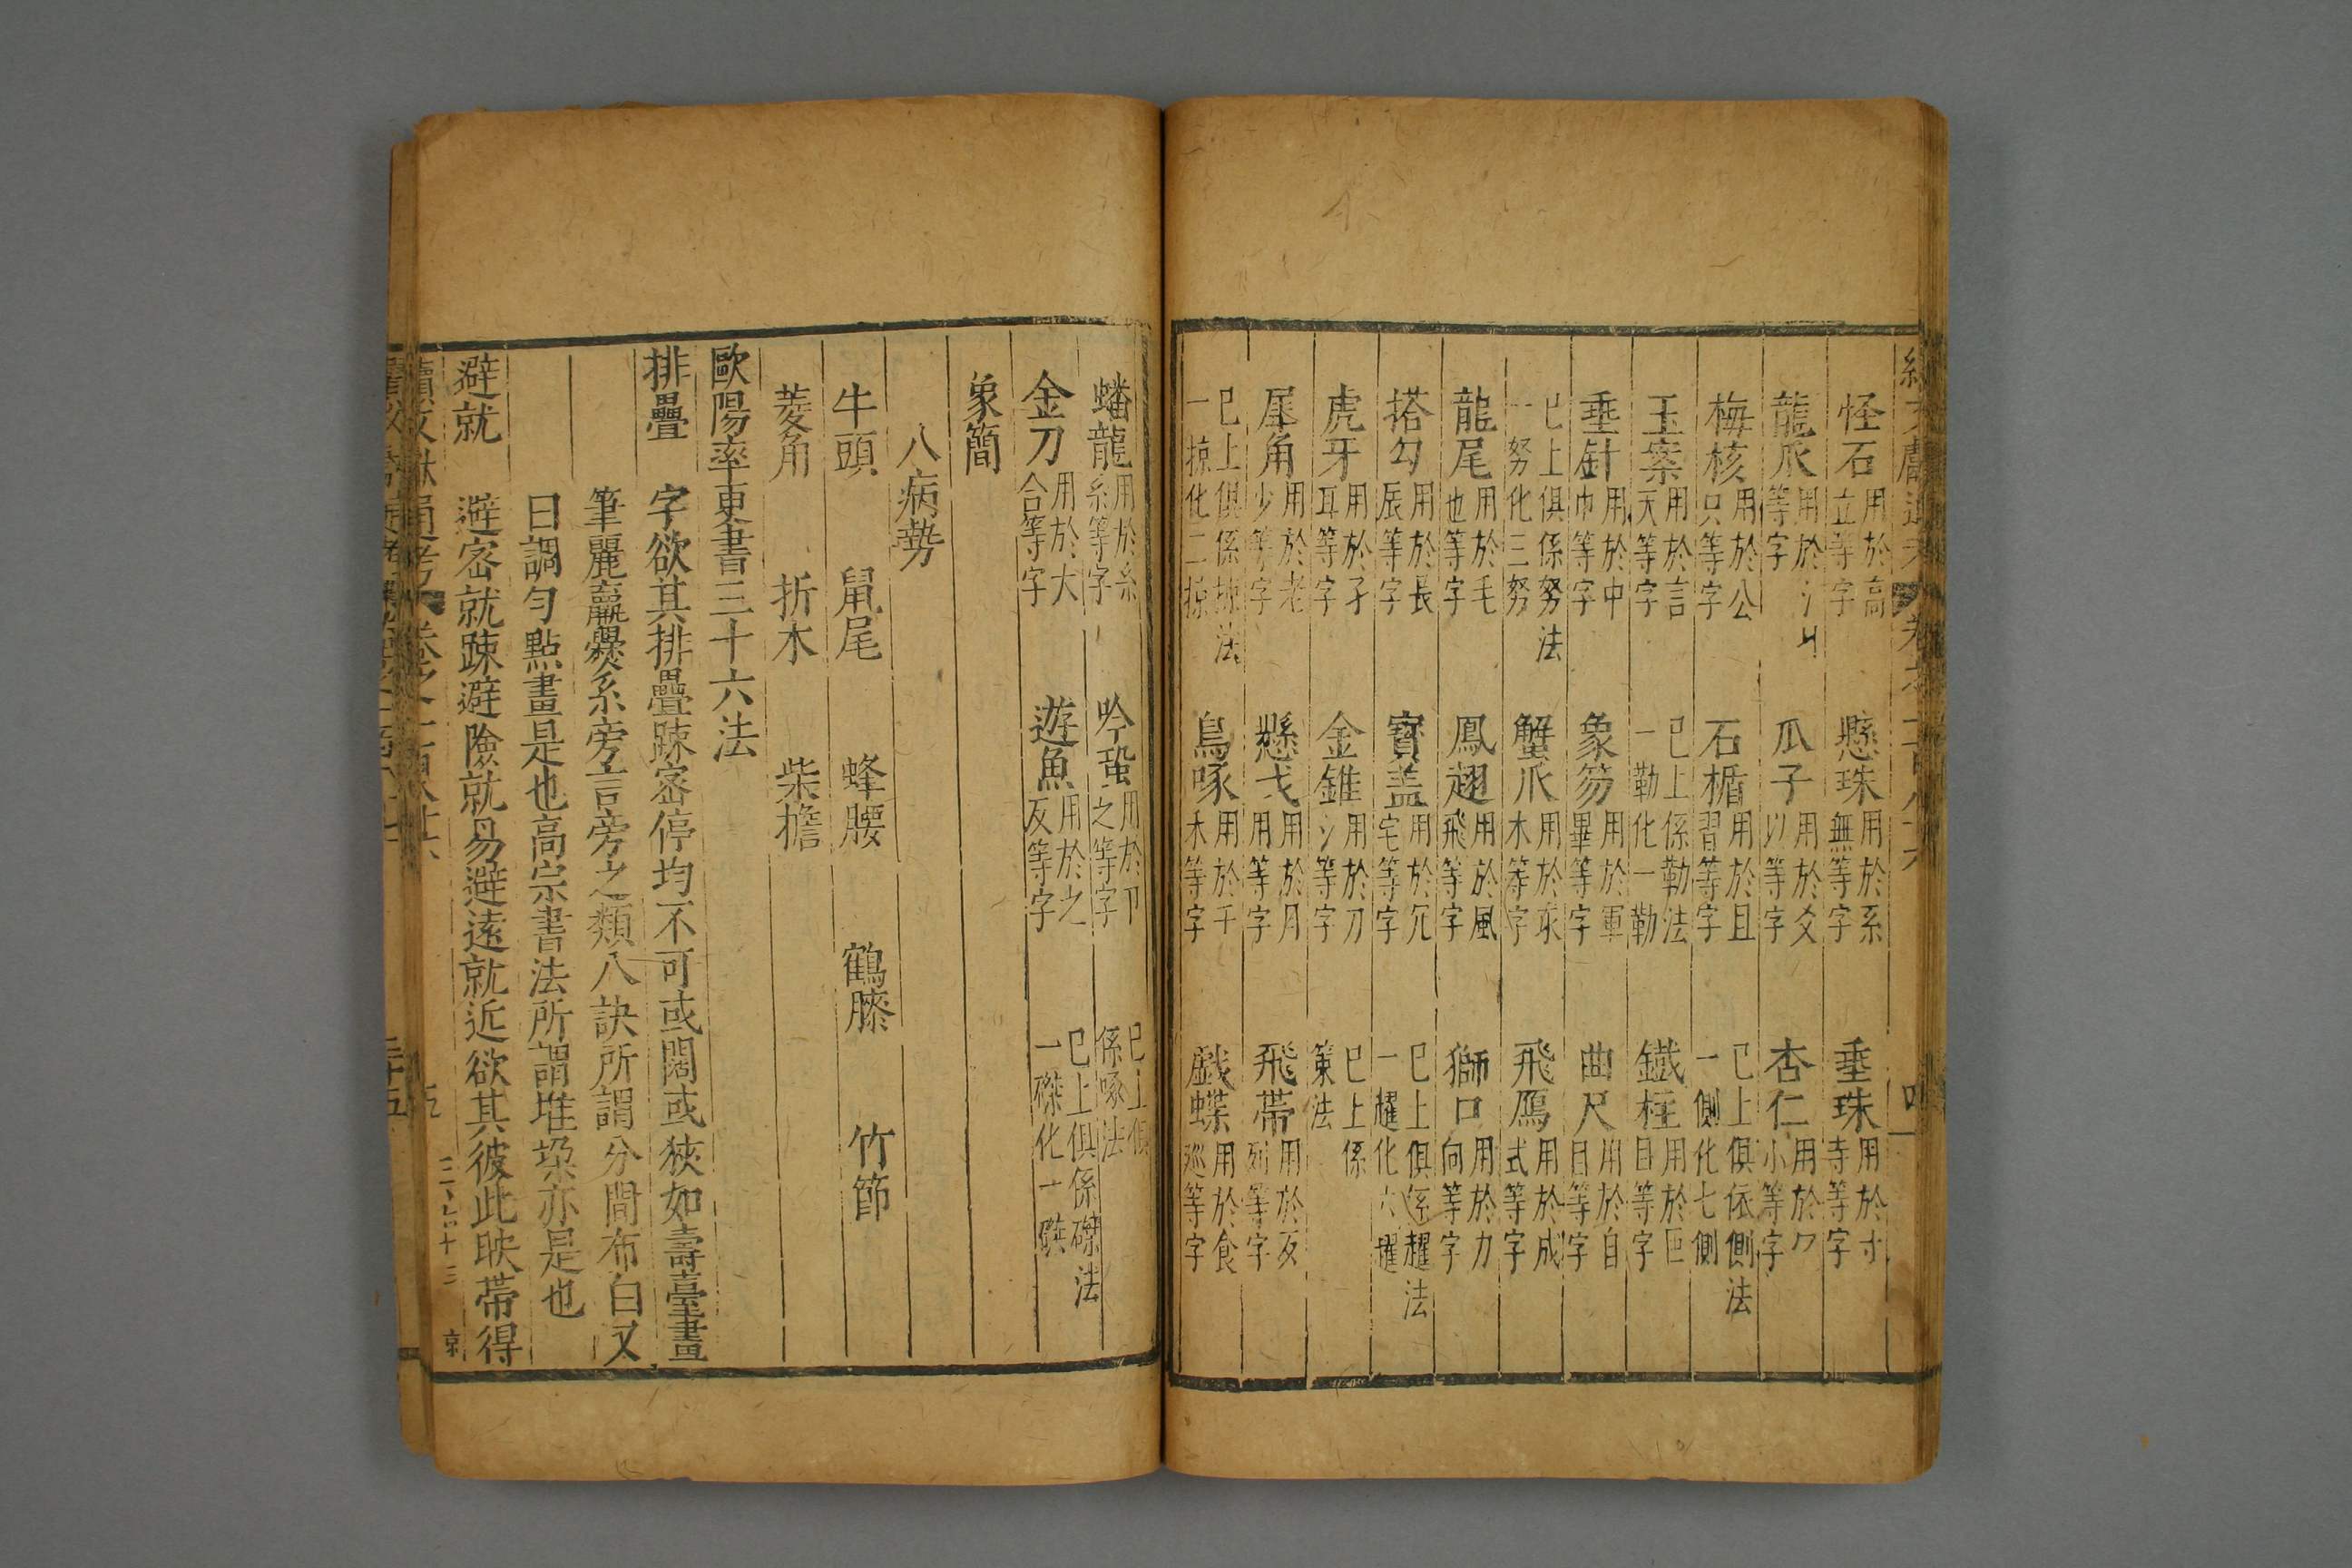 怪石 用於高立等字 懸珠 用於系無等字 垂珠 用於寸寺等字
龍爪 用於氵等字 瓜子 用於爻以等字 杏仁 用於小等字
梅核 用於公只等字 石楯 用於且習等字 已上俱依側法一側化七側
玉案 用於言天等字 已上係勒法一勒化一勒 鐵柱 用於巨目等字
垂針 用於中巾等字 象笏 用於軍畢等字 曲尺 用於自目等字
已上俱係努法一努化三努 蟹爪 用於求木等字 飛鴈 用於成式等字
龍尾 用於毛也等字 鳳翅 用於風飛等字 獅口 用於力向等字
搭勾 用於長辰等字 寶盖 用於冗宅等字 已上俱係趯法一趯化六趯
虎牙 用於孑耳等字 金錐 用於刀氵等字 已上係策法
犀角 用於老少等字 懸戈 用於月用等字 飛帶 用於友等字
已上俱係掠法一掠化二掠 鳥啄 用於千禾等字 戱蝶 用於食巡等字
蟠龍 用於糸系等字 吟蛩 用於卩之等字 已上俱係啄法
金刀 用於大合等字 遊魚 用於之反等字 已上俱係磔法一磔化一磔
象簡
八病勢
牛頭 鼠尾 蜂腰 鶴膝 竹節
菱角 折木 柴擔
歐陽率更書三十六法
排疊 字欲其排疊疎密停均不可或闊或狹如壽臺畫
筆麗羸爨系旁言旁之類八訣所謂分間布白又
曰調勻點畫是也高宗書法所謂堆垜亦是也
避就 避密就疎避險就易避遠就近欲其彼此映帶得